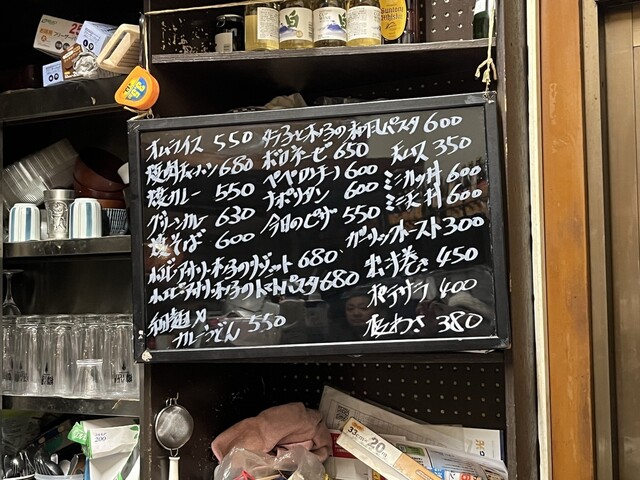 オムライス 550
焼肉チャーハン 680
焼カレー 550
グリーンカレー 630
焼そば 600
小エビとアサリとキノコのリゾット 680
小エビとアサリとキノコのトマトパスタ 680
和麺メ
カレーうどん 550
タラコとキノコの和風パスタ 600
ボロネーゼ 650
ペペロンチーノ 600
ナポリタン 600
今日のピザ 550
オムソバ 350
ミニカツ丼 600
ミニ天丼 600
ガーリックトースト 300
出汁巻き 450
ポテサラ 400
板わさ 380